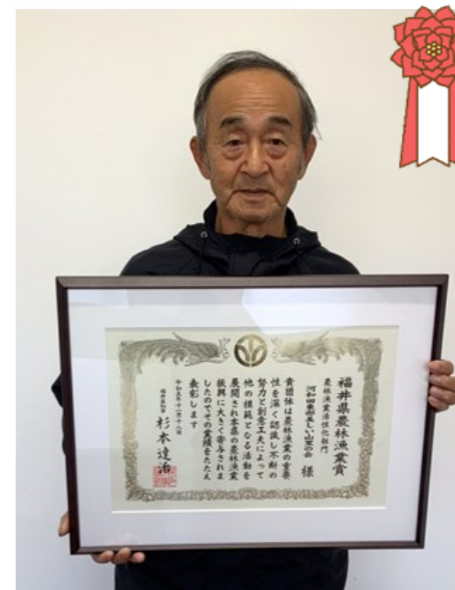 福井県農林漁業賞
農林漁業活性化部門
河和田東部美しい山里の会 様
貴団体は農林漁業の重要
性を深く認識し不断の
努力と創意工夫によって
他の模範となる活動を
展開され本県の農林漁業
振興に大きく寄与されま
したのでその業績をたたえ
表彰します
令和五年十一月十八日
福井県知事 杉本達治